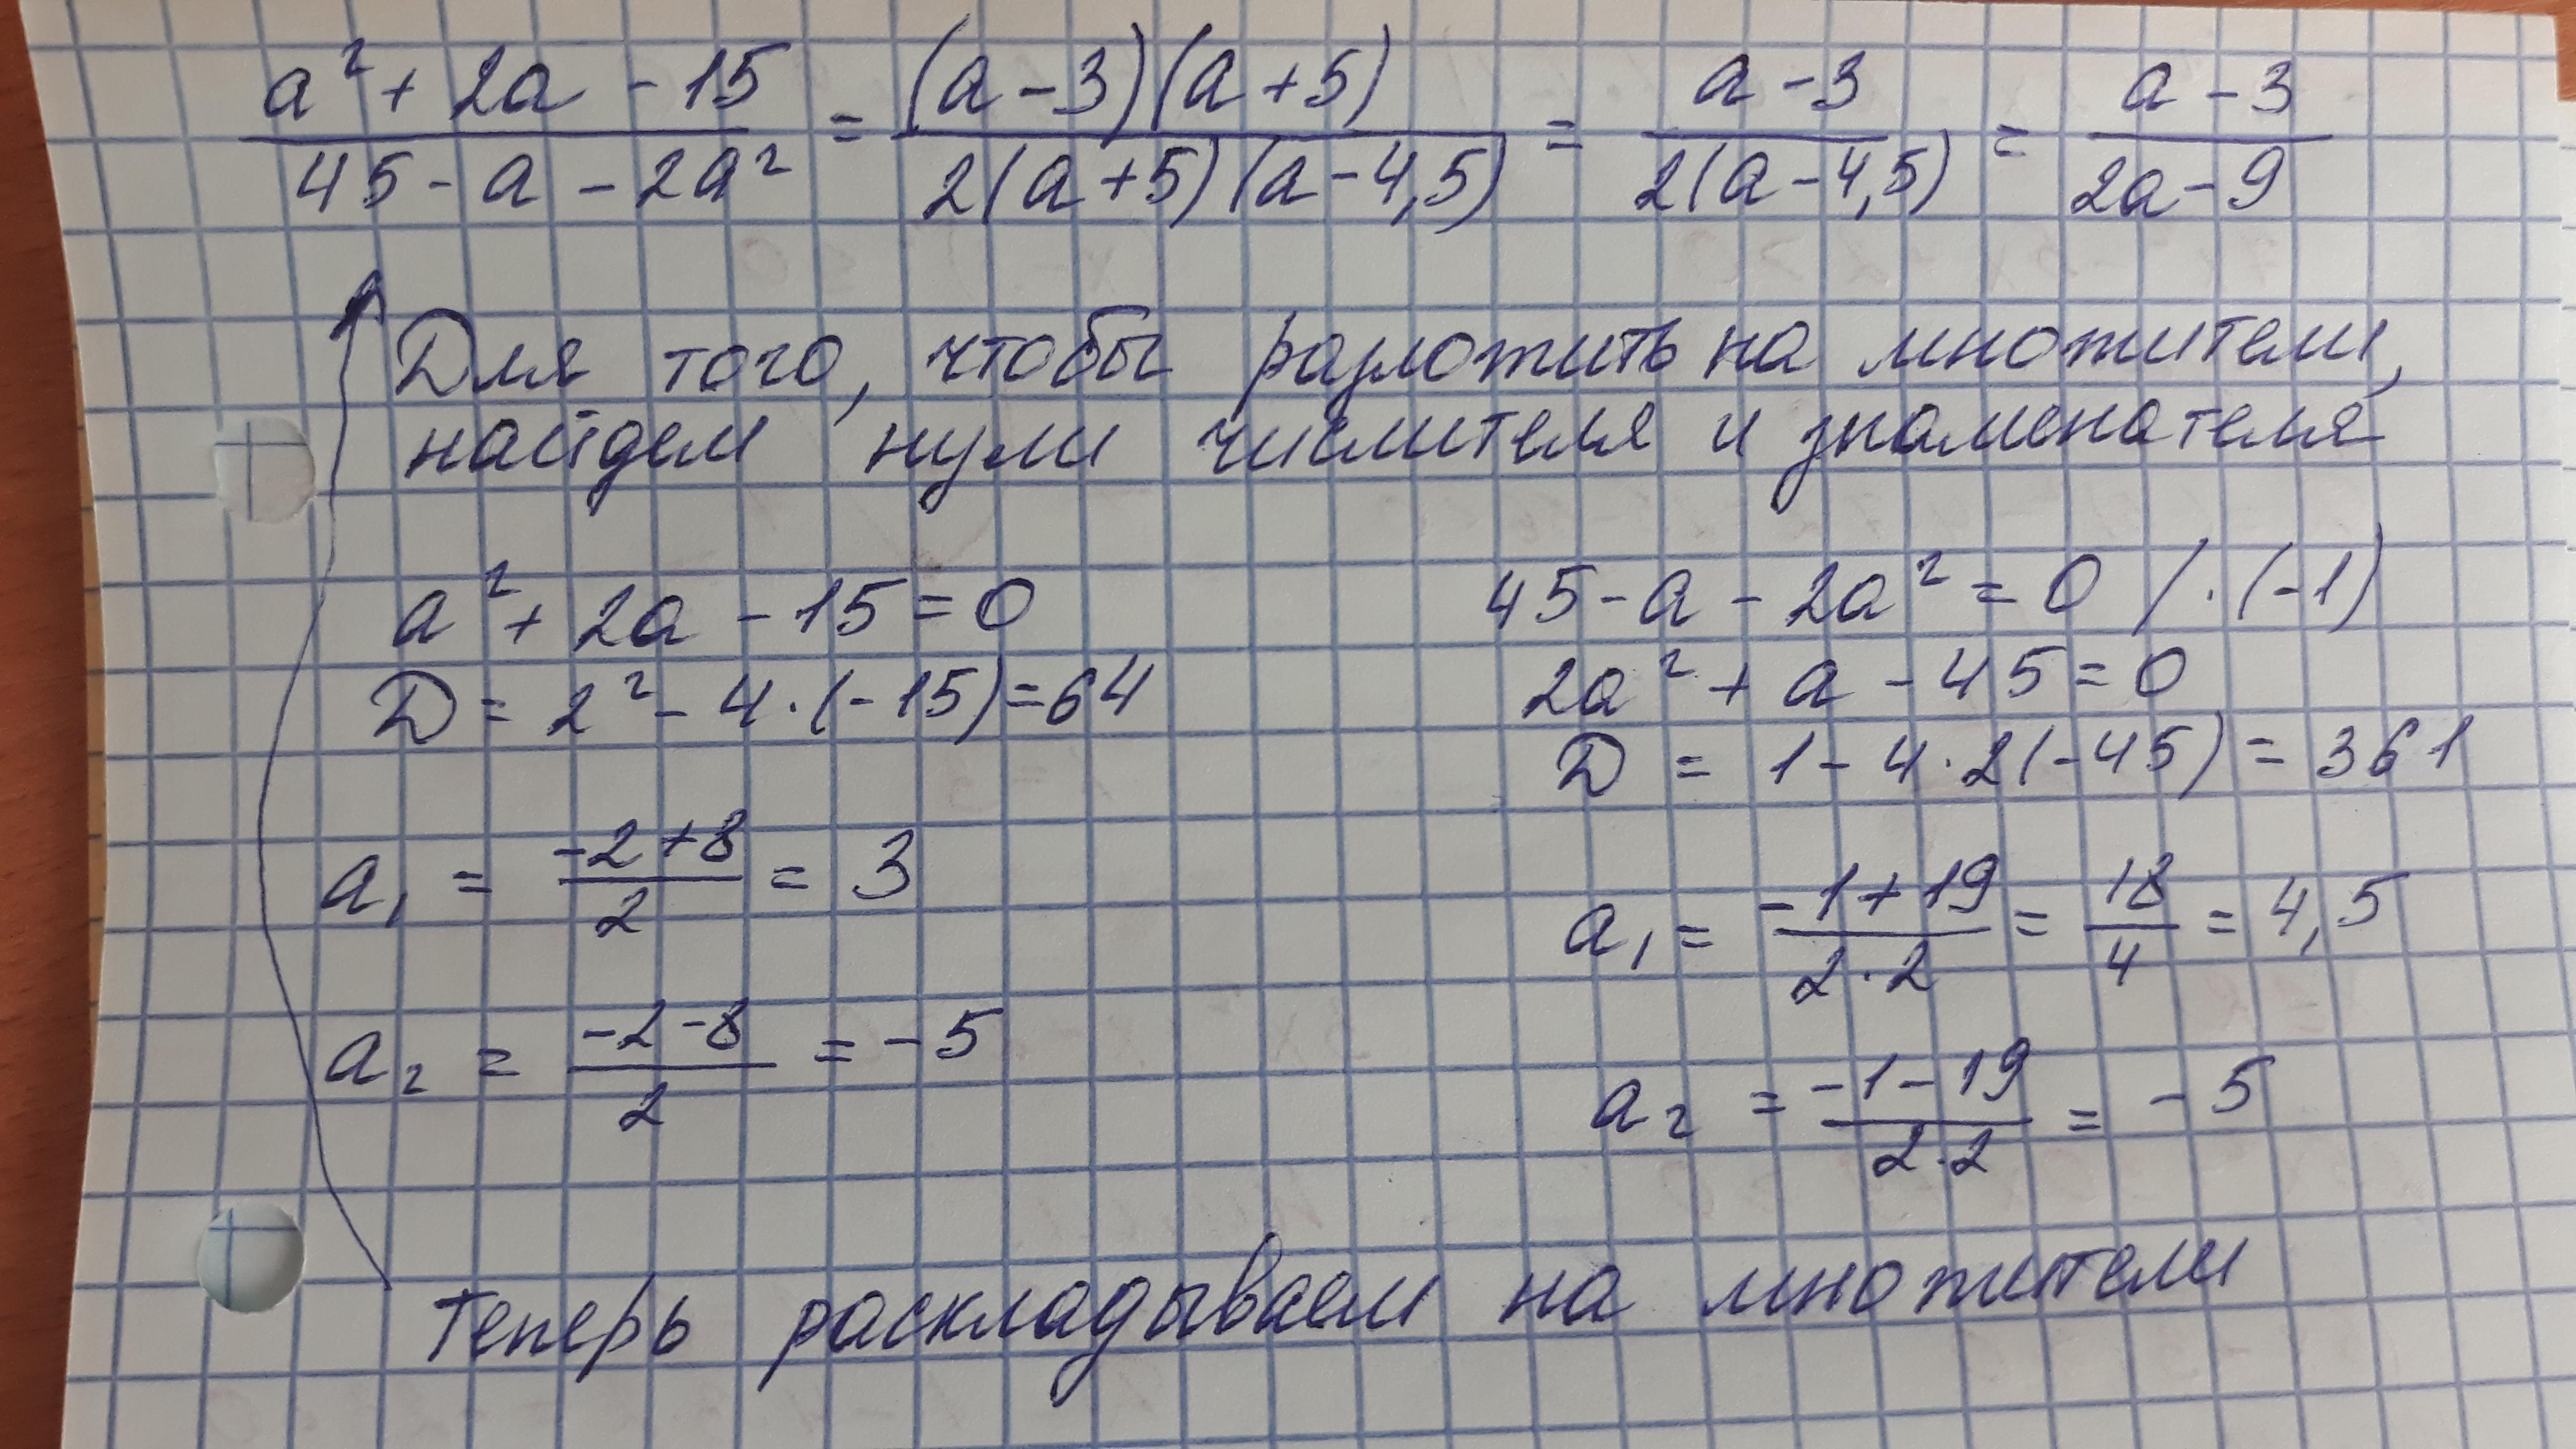 a² + 2a - 15 / 45 - a - 2a² = (a - 3)(a + 5) / 2(a + 5)(a - 4,5) = a - 3 / 2(a - 4,5) = a - 3 / 2a - 9
Для того, чтобы разложить на множители,
найдем нули числителя и знаменателя
a² + 2a - 15 = 0
D = 2² - 4·(-15) = 64
a₁ = -2 + 8 / 2 = 3
a₂ = -2 - 8 / 2 = -5
45 - a - 2a² = 0 / ·(-1)
2a² + a - 45 = 0
D = 1 - 4·2(-45) = 361
a₁ = -1 + 19 / 2·2 = 18 / 4 = 4,5
a₂ = -1 - 19 / 2·2 = -5
Теперь раскладываем на множители